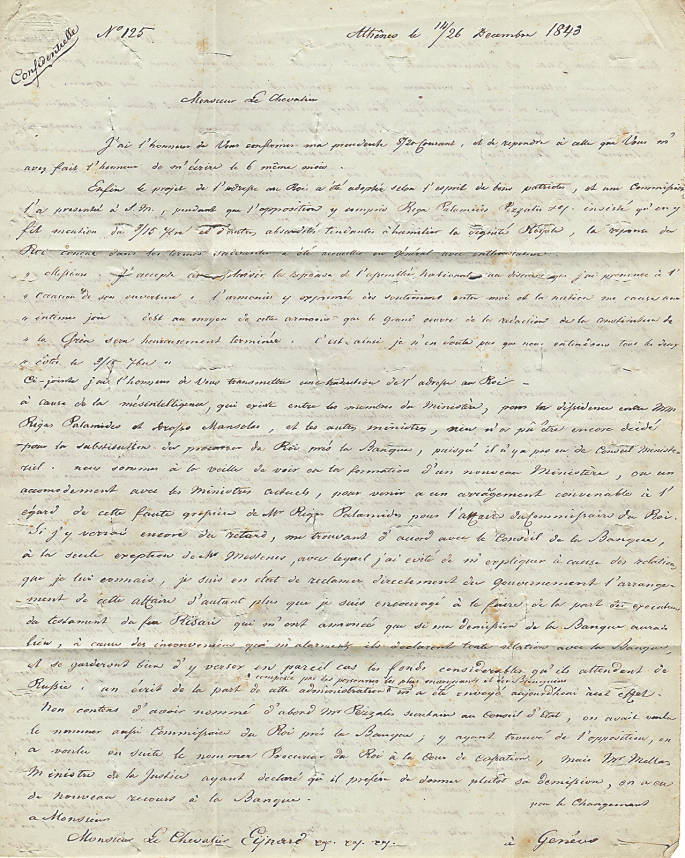 Confidentielle
N° 125
Athènes le 14/26 Decembre 1843
Monsieur Le Chevalier
J'ai l'honneur de Vous confirmer ma precedente 8/20 Courant, et de repondre à celle que Vous m'
avez fait l'honneur de m'écrire le 6 même mois.
Enfin le projet de l'adresse au Roi a été adoptée selon l'esprit de bons patriotes, et une Commission
l'a presenté à S.M., pendant que l'opposition y compris Riga Palamides Pezzalis insisté qu'en y
fit mention du 3/15 7bre et d'autres absurdités tendantes à humilier la dignité Royale, la reponse du
Roi concue dans les termes suivantes a été accueillie en général avec enthousiasme.
" Messieurs J'accepte avec la reponse de l'assemblée Nationale au discours que j'ai prononcé à l'
" occasion de son ouverture : l'armonie y exprimée des sentiments entre moi et la nation me cause une
" intême joie c'est au moyen de cette armonie que le grand œuvre de la redaction de la constitution de
" la Grèce sera heureusement terminée. C'est ainsi je n'en doute pas que nous entendrons tous les deux
" côtés le 3/15 7bre "
Ci-jointe j'ai l'honneur de Vous transmettre une traduction de l'adresse au Roi –
à cause de la mésintelligence, qui existe entre les membres du Ministère, pour la dissidence entre MM
Rigas Palamides et Drosso Mansolas, et les autres ministres, rien n'a pu être encore décidé
pour la substitution du procureur du Roi prés la Banque, puisqu'il à y a pas eu de Conseil Ministe-
riel. nous sommes à la veille de voir ou la formation d'un nouveau Ministère, ou un
accomodement avec les Ministres actuels, pour venir a un arrangement convenable à l'
égard de cette faute grossiere de Mr Riga Palamides pour l'affaire du Commissaire du Roi.
Si j'y verrai encore du retard, me trouvant d'accord avec le Conseil de la Banque,
à la seule exeption de Mr Messenes, avec lequel j'ai evité de m'expliquer à cause des relations
que je lui connais, je suis en état de reclamer directement du Gouvernement l'arrange-
ment de cette affaire d'autant plus que je suis encouragé à le faire de la part des executeurs
du testament du feu Risari qui m'ont annoncé que si ma demission de la Banque aurait
lieu, à cause des inconveniens qui m'alarment ils declarent toute relation avec la Banque,
et se garderont bien d'y verser en pareil cas les fonds considerables qu'ils attendent de
Russie : un écrit de la part de cette administration m'a été envoyé aujourdhui à cet effet.
composée par les personnes les plus marquants et
Non contens d'avoir nommé d'abord Mr Pezzalis secretaire au Conseil d'Etat, on avait voulu
le nommer aussi Commissaire du Roi prés la Banque; y ayant trouvé de l'opposition, on
a voulu en suite le nommer Procureur du Roi à la Cour de Cassation, mais Mr Mellas
Ministre de la Justice ayant declaré qu'il prefére de donner plutôt sa demission, on a eu
de nouveau recours à la Banque.
pour le Changement
a Monsieur
Monsieur Le Chevalier Eynard
à Genève